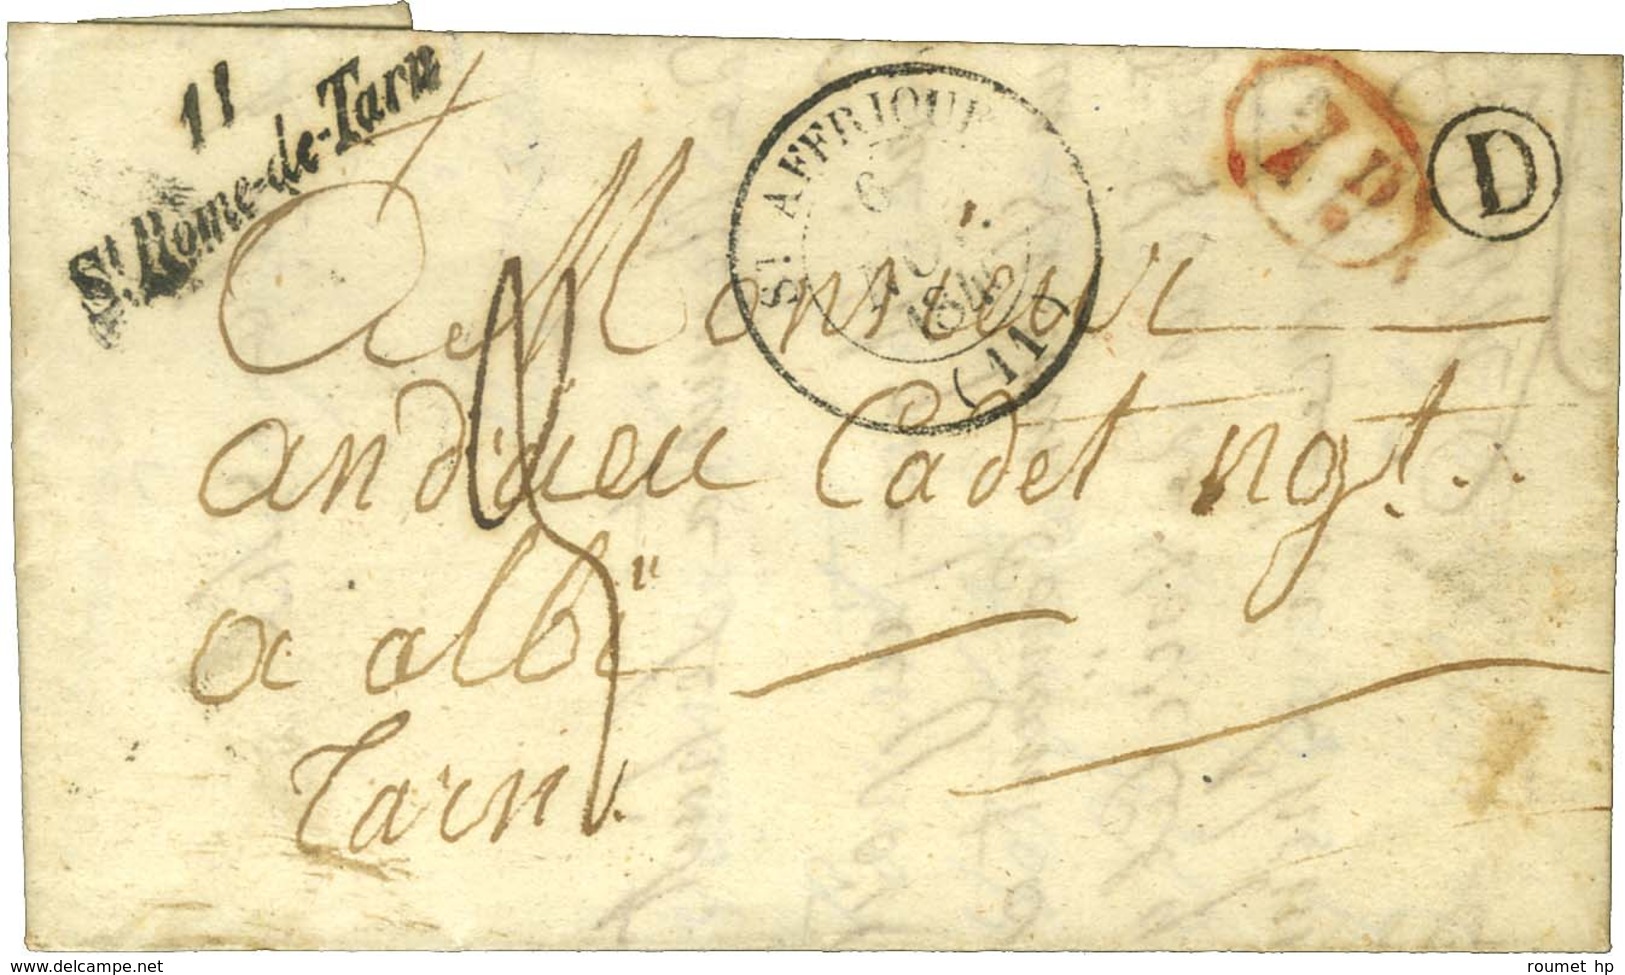 11
St. Rome-de-Tarn
ST. AFFRIQUE
6
1846
(11)
1 D
D
A Monsieur
andrieu Cadet ngt.
a albi
Tarn.
www.delcampe.net
roumet hp